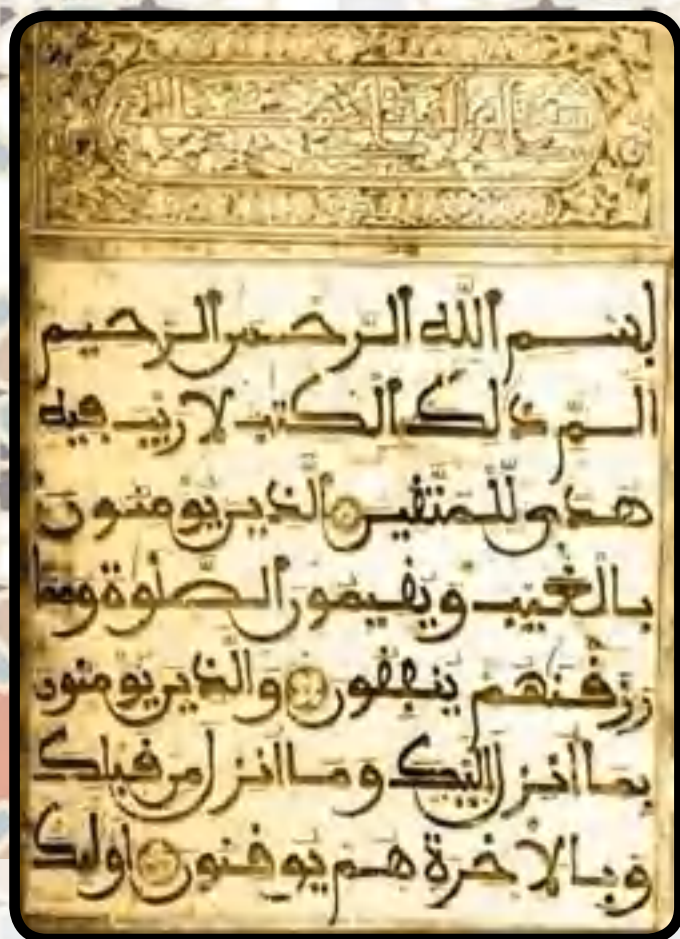 بسم الله الرحمن الرحيم
الم ذلك الكتب لا ريب فيه
هدى للمتقين الذين يومنون
بالغيب ويقيمون الصلوة ومما
رزقنهم ينفقون والذين يومنون
بما أنزل إليك وما أنزل من قبلك
وبالاخرة هم يوقنون اوليك